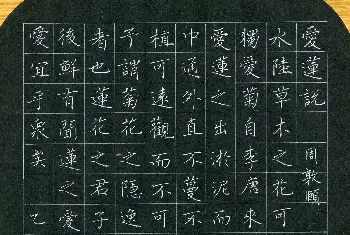 愛蓮說 周敦頤
水陸草木之花可
獨愛菊自李唐來
愛蓮之出淤泥而
中通外直不蔓不
植可遠觀而不可
予謂菊花之隱逸
者也蓮花之君子
後鮮有聞蓮之愛
愛宜乎眾矣 乙